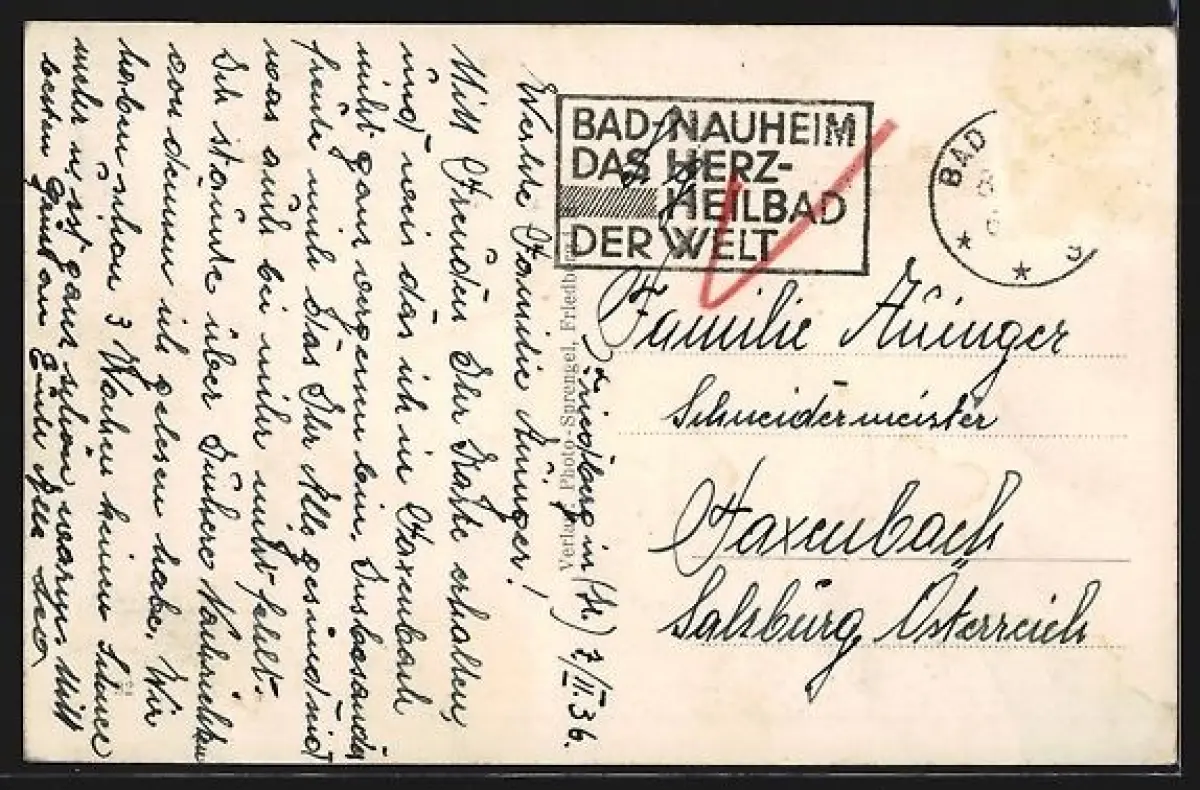 Friedberg in (H.) 7/II.36.
Werthe Familie Auinger!
Mitt Freuden Ihr Karte erhalten,
und weis das ich in Taxenbach
nicht ganz vergessen bin. Insbesonder
freute mich das Ihr Alle gesund seid
was auch bei mihr nicht fehlt.
Ich staunte über Nachrichten
von denen ich gelesen habe. Wir
haben schon 3 Wochen keinen Schnee
mehr u. ist ganz schön warm. Mitt
besten Grüß an Euch Alle Leo
Verlag Photo-Sprengel, Friedberg
BAD-NAUHEIM
DAS HERZ-
HEILBAD
DER WELT
BAD
Familie Auinger
Schneidermeister
Taxenbach
Salzburg, Österreich